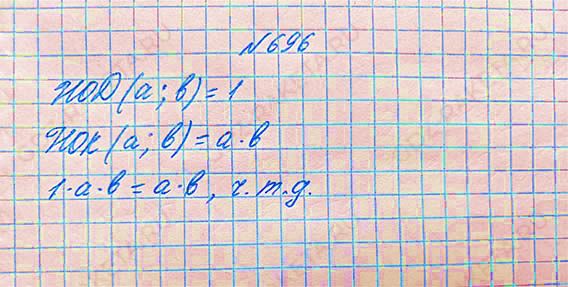 №696
НОД(а; в) = 1
НОК(а; в) = а·в
1·а·в = а·в, ч.т.д.